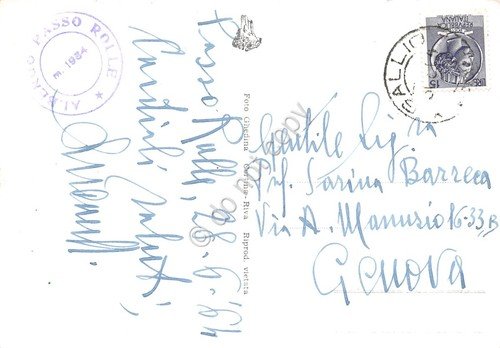 ALBERGO PASSO ROLLE
m. 1984
Passo Rolle 28-6-'67
Cordiali Saluti
Foto Ghedina - Cortina-Riva Riprod. vietata
do not copy
GALLIO
REPUBBLICA ITALIANA
Gentile Sig.na
Prof. Sarina Barreca
Via A. Manuzio 16-33B
Genova